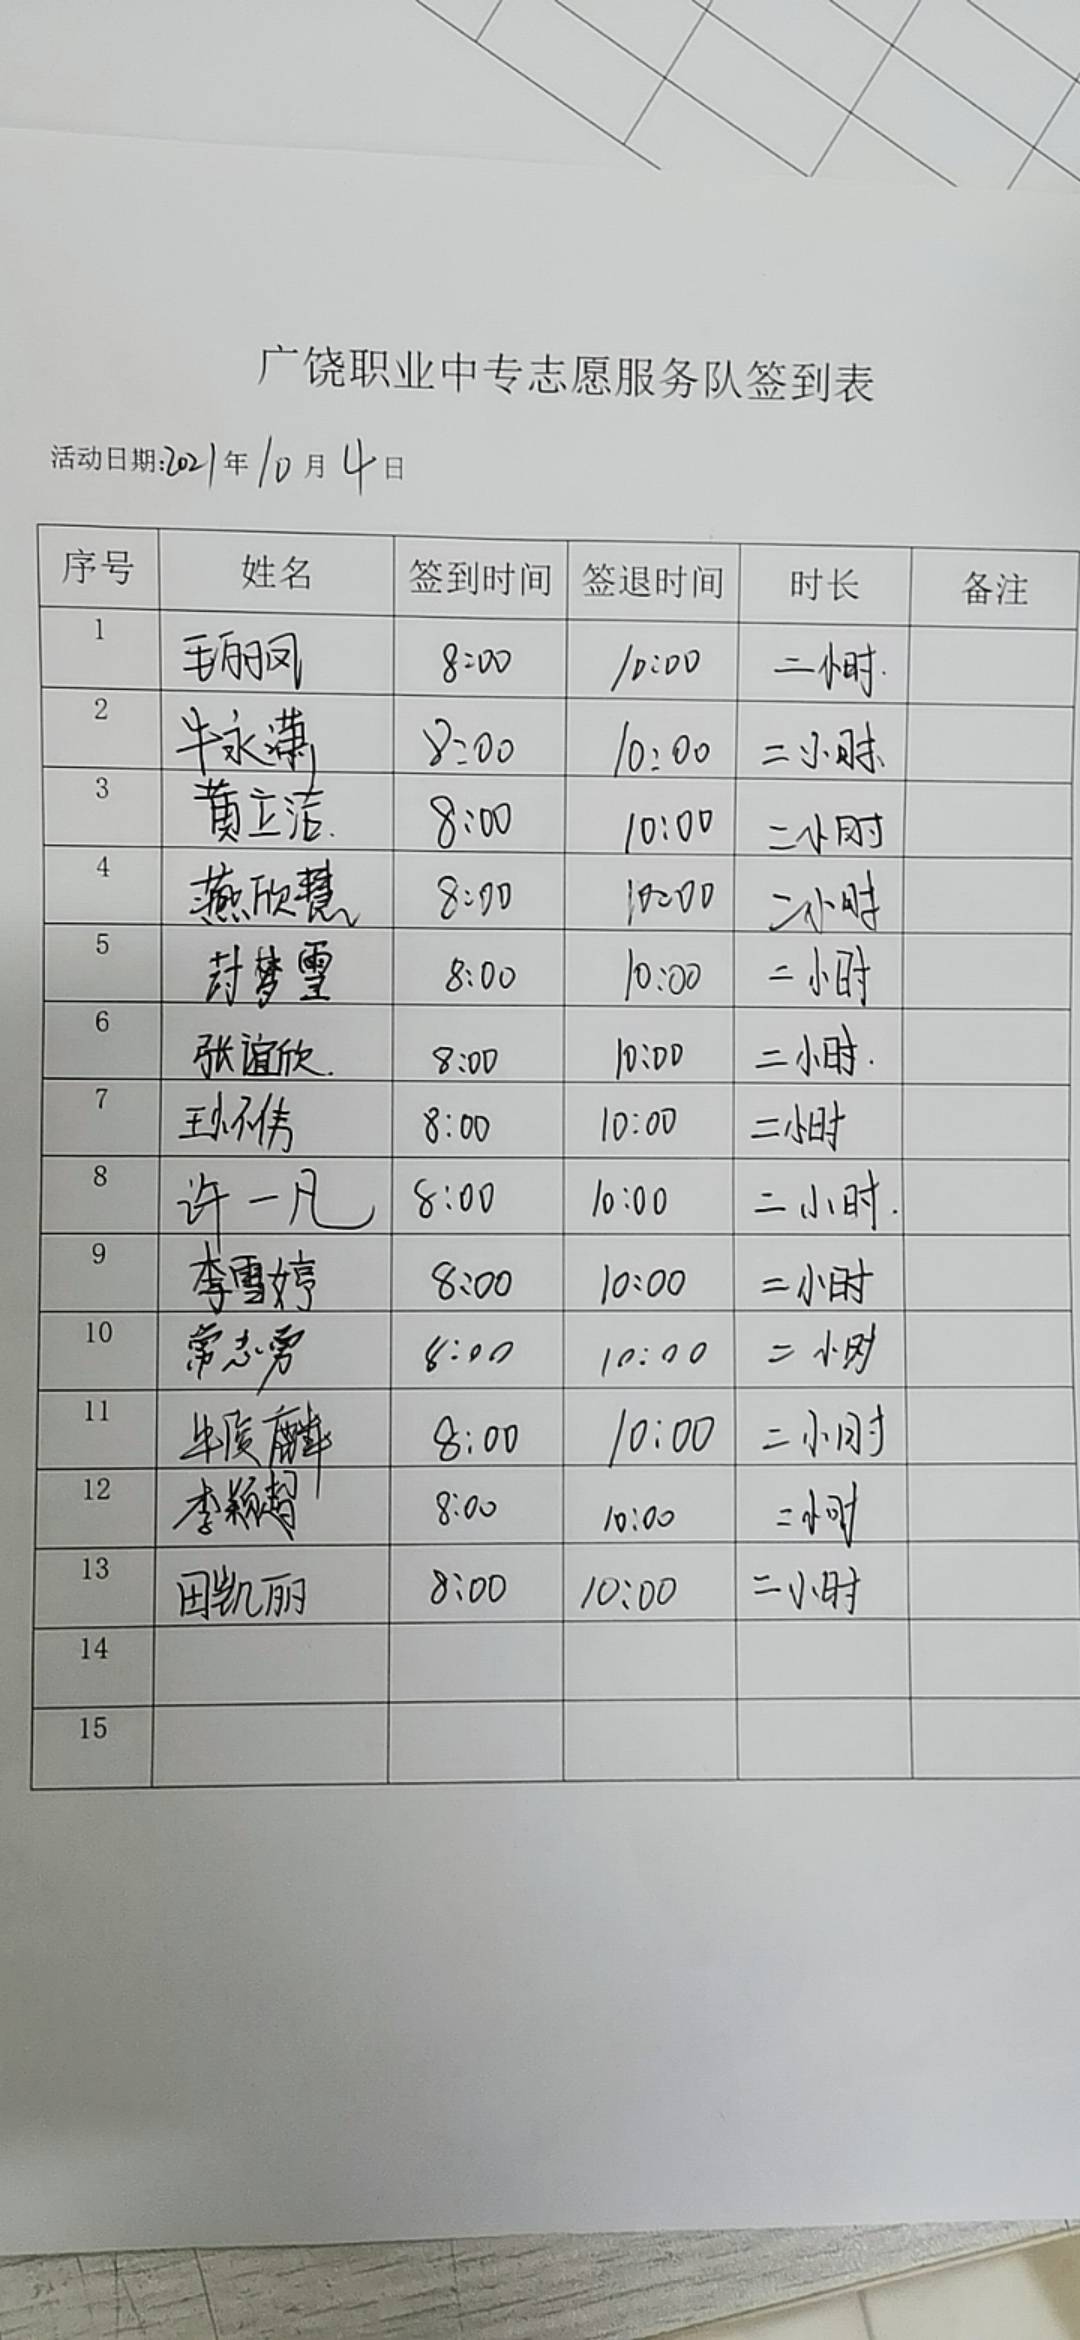 广饶职业中专志愿服务队签到表
活动日期:2021年10月4日
序号 姓名 签到时间 签退时间 时长 备注
1 毛丽凤 8:00 10:00 二小时.
2 牛永潇 8:00 10:00 二小时.
3 黄立洁. 8:00 10:00 二小时
4 燕欣慧 8:00 10:00 二小时
5 封梦雪 8:00 10:00 二小时
6 张谊欣. 8:00 10:00 二小时.
7 8:00 10:00 二小时
8 许一凡 8:00 10:00 二小时.
9 李雪婷 8:00 10:00 二小时
10 常志勇 8:00 10:00 二小时
11 牛俊麟 8:00 10:00 二小时
12 李颖超 8:00 10:00 二小时
13 田凯丽 8:00 10:00 二小时
14
15